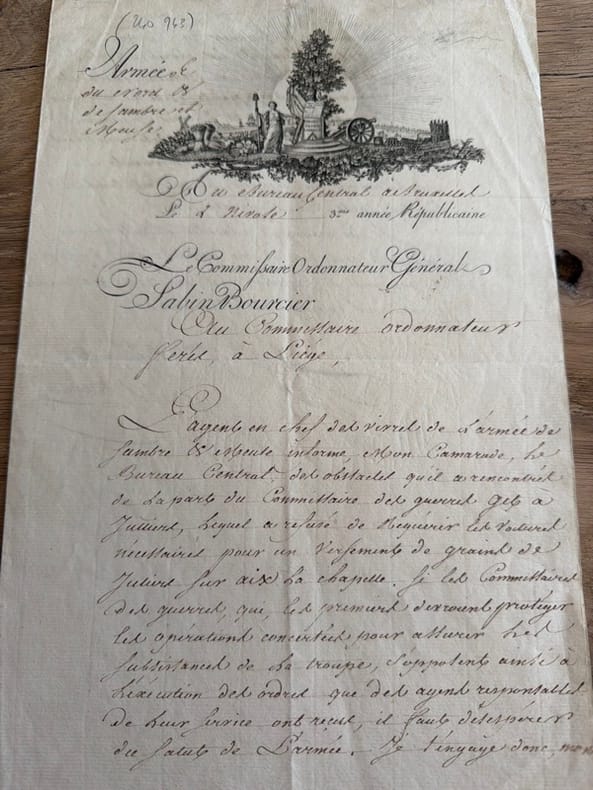 (Uo 943)
Armée
du Nord &
de Sambre et
Meuse
Au Bureau Central à Bruxelles
Le 2 Nivose 3me année Républicaine
Le Commissaire Ordonnateur Général
Sabin Bourcier
Au Commissaire ordonnateur
à Liège,
L'agent en chef des vivres de L'armée de
Sambre & Meuse informe, Mon Camarade, Le
Bureau Central, des obstacles qu'il a rencontrés
de la part du Commissaire des guerres à
Julliers, lequel a refusé de Requerir les voitures
nécessaires pour un Versement de grains de
Juliers sur aix La chapelle. Si les Commissaires
des guerres, qui, les premiers devroient protéger
les opérations concertées pour assurer les
subsistances de La troupe, s'opposent ainsi à
L'éxécution des ordres que des agens responsables
de leur service ont reçus, il faut désespérer
du salut de L'armée. Je t'engage donc, mon